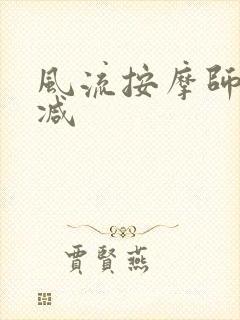 風流按摩師
減
賈賢燕